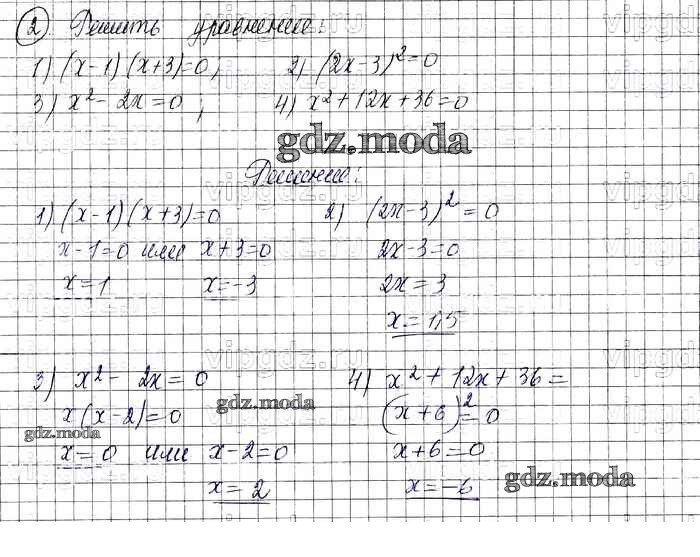 2. Решить уравнение:
1) (x-1)(x+3)=0, 2) (2x-3)²=0
3) x²-2x=0, 4) x²+12x+36=0
gdz.moda
Решение:
1) (x-1)(x+3)=0
x-1=0 или x+3=0
x=1 x=-3
2) (2x-3)²=0
2x-3=0
2x=3
x=1,5
3) x²-2x=0
x(x-2)=0
x=0 или x-2=0
x=2
4) x²+12x+36=
(x+6)²=0
x+6=0
x=-6
gdz.moda
gdz.moda
gdz.moda
vipgdz.ru
vipgdz.ru
vipgdz.ru